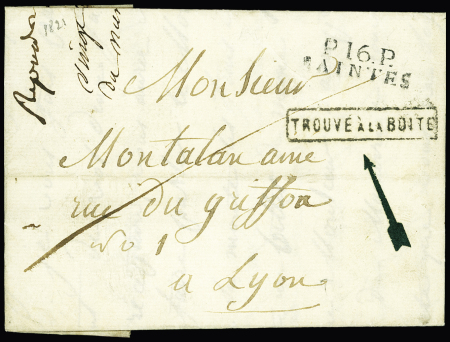 1821
P.16.P.
SAINTES
TROUVÉ À LA BOITE
Monsieur
Montalan ainé
rue du griffon
No 1
a Lyon